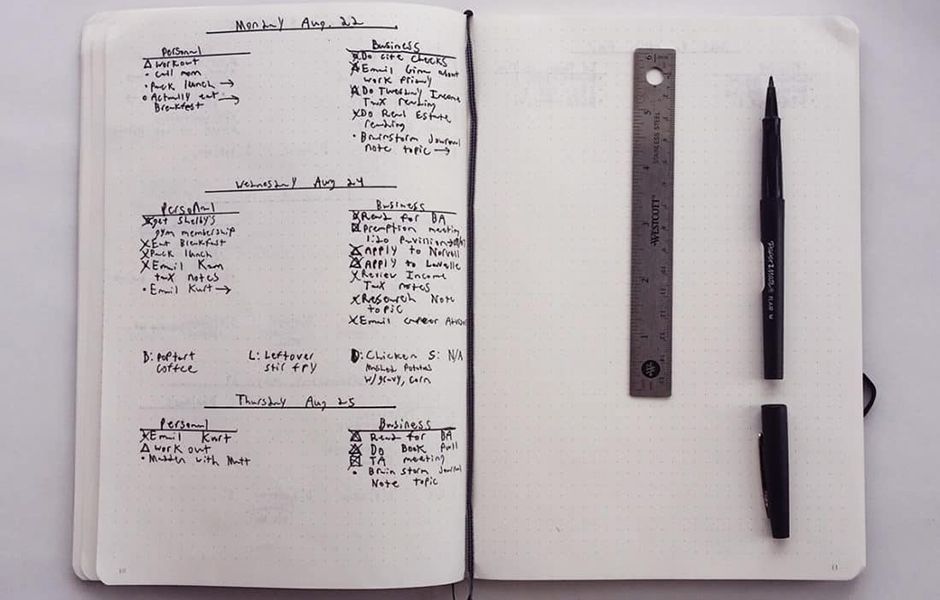 Monday Aug. 22
Personal
Δ workout
• call mom
• Pack lunch →
• Actually eat →
Breakfast
Business
X Do cite checks
X Email Gina about
work friday
X Do Tuesday Income
Tax reading
X Do Real Estate
reading
• Brainstorm Journal
note topic →
Wednesday Aug 24
Personal
X get Shelby's
gym membership
X Eat Breakfast
X Pack lunch
X Email Kam
tax notes
• Email Kurt →
Business
X Read for BA
meeting
1:20 Pavillion
Apply to Norvell
Apply to Lavelle
X Review Income
Tax notes
X Research Note
topic
X Email career
D: poptart
coffee
L: Leftover
stir fry
D: Chicken
Mashed Potatos
w/gravy, corn
S: N/A
Thursday Aug 25
Personal
X Email Kurt
Δ work out
• Madden with Matt
Business
Read for BA
Do Book Pull
TA meeting
• Brain storm Journal
Note topic
10
11
6
5
4
3
2
1
STAINLESS STEEL
WESTCOTT